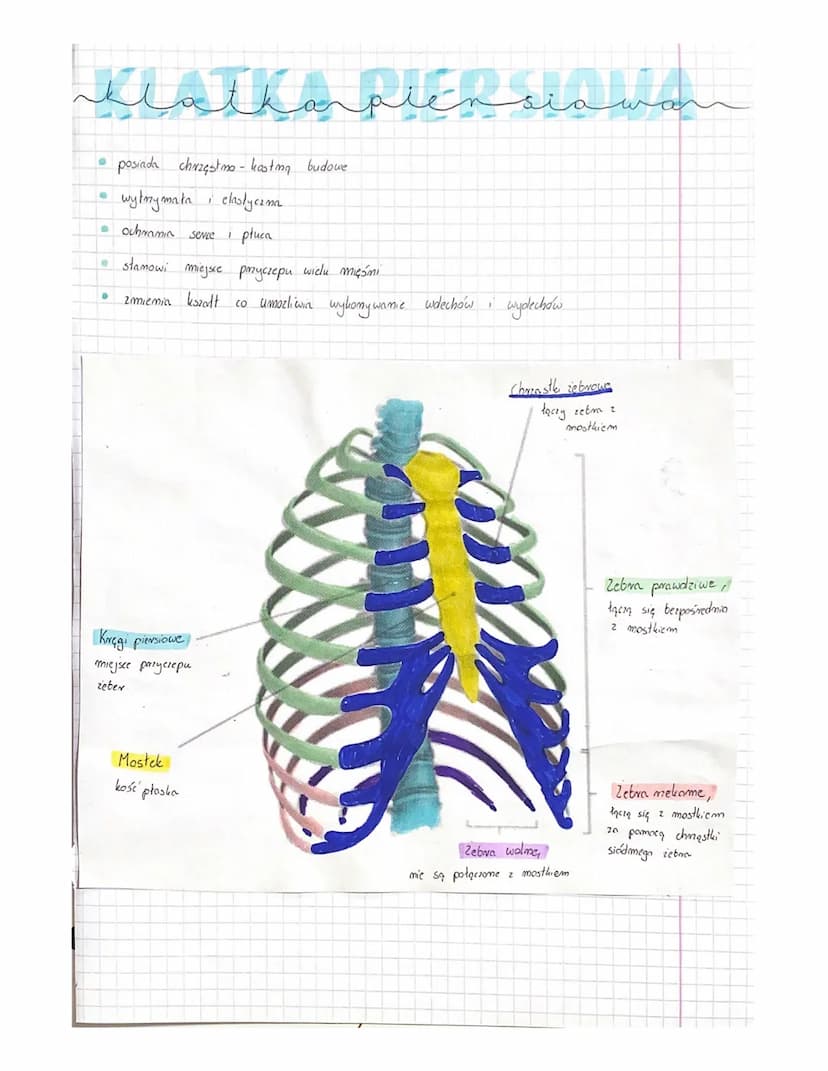 KLATKA PIERSIOWA
klatka piersiowa
posiada chrzęstno-kostną budowe
wytrzymała i elastyczna
ochrania serce i płuca
stanowi miejsce przyczepu wielu mięśni
zmienia kształt co umożliwia wykonywanie wdechów i wydechów
Chrząstki żebrowe
łączy żebra z
mostkiem
Żebra prawdziwe,
łączą się bezpośrednio
z mostkiem
Kręgi piersiowe
miejsce przyczepu
żeber
Mostek
kość płaska
Żebra rzekome,
łączą się z mostkiem
za pomocą chrząstki
siódmego żebra
Żebra wolne,
nie są połączone z mostkiem